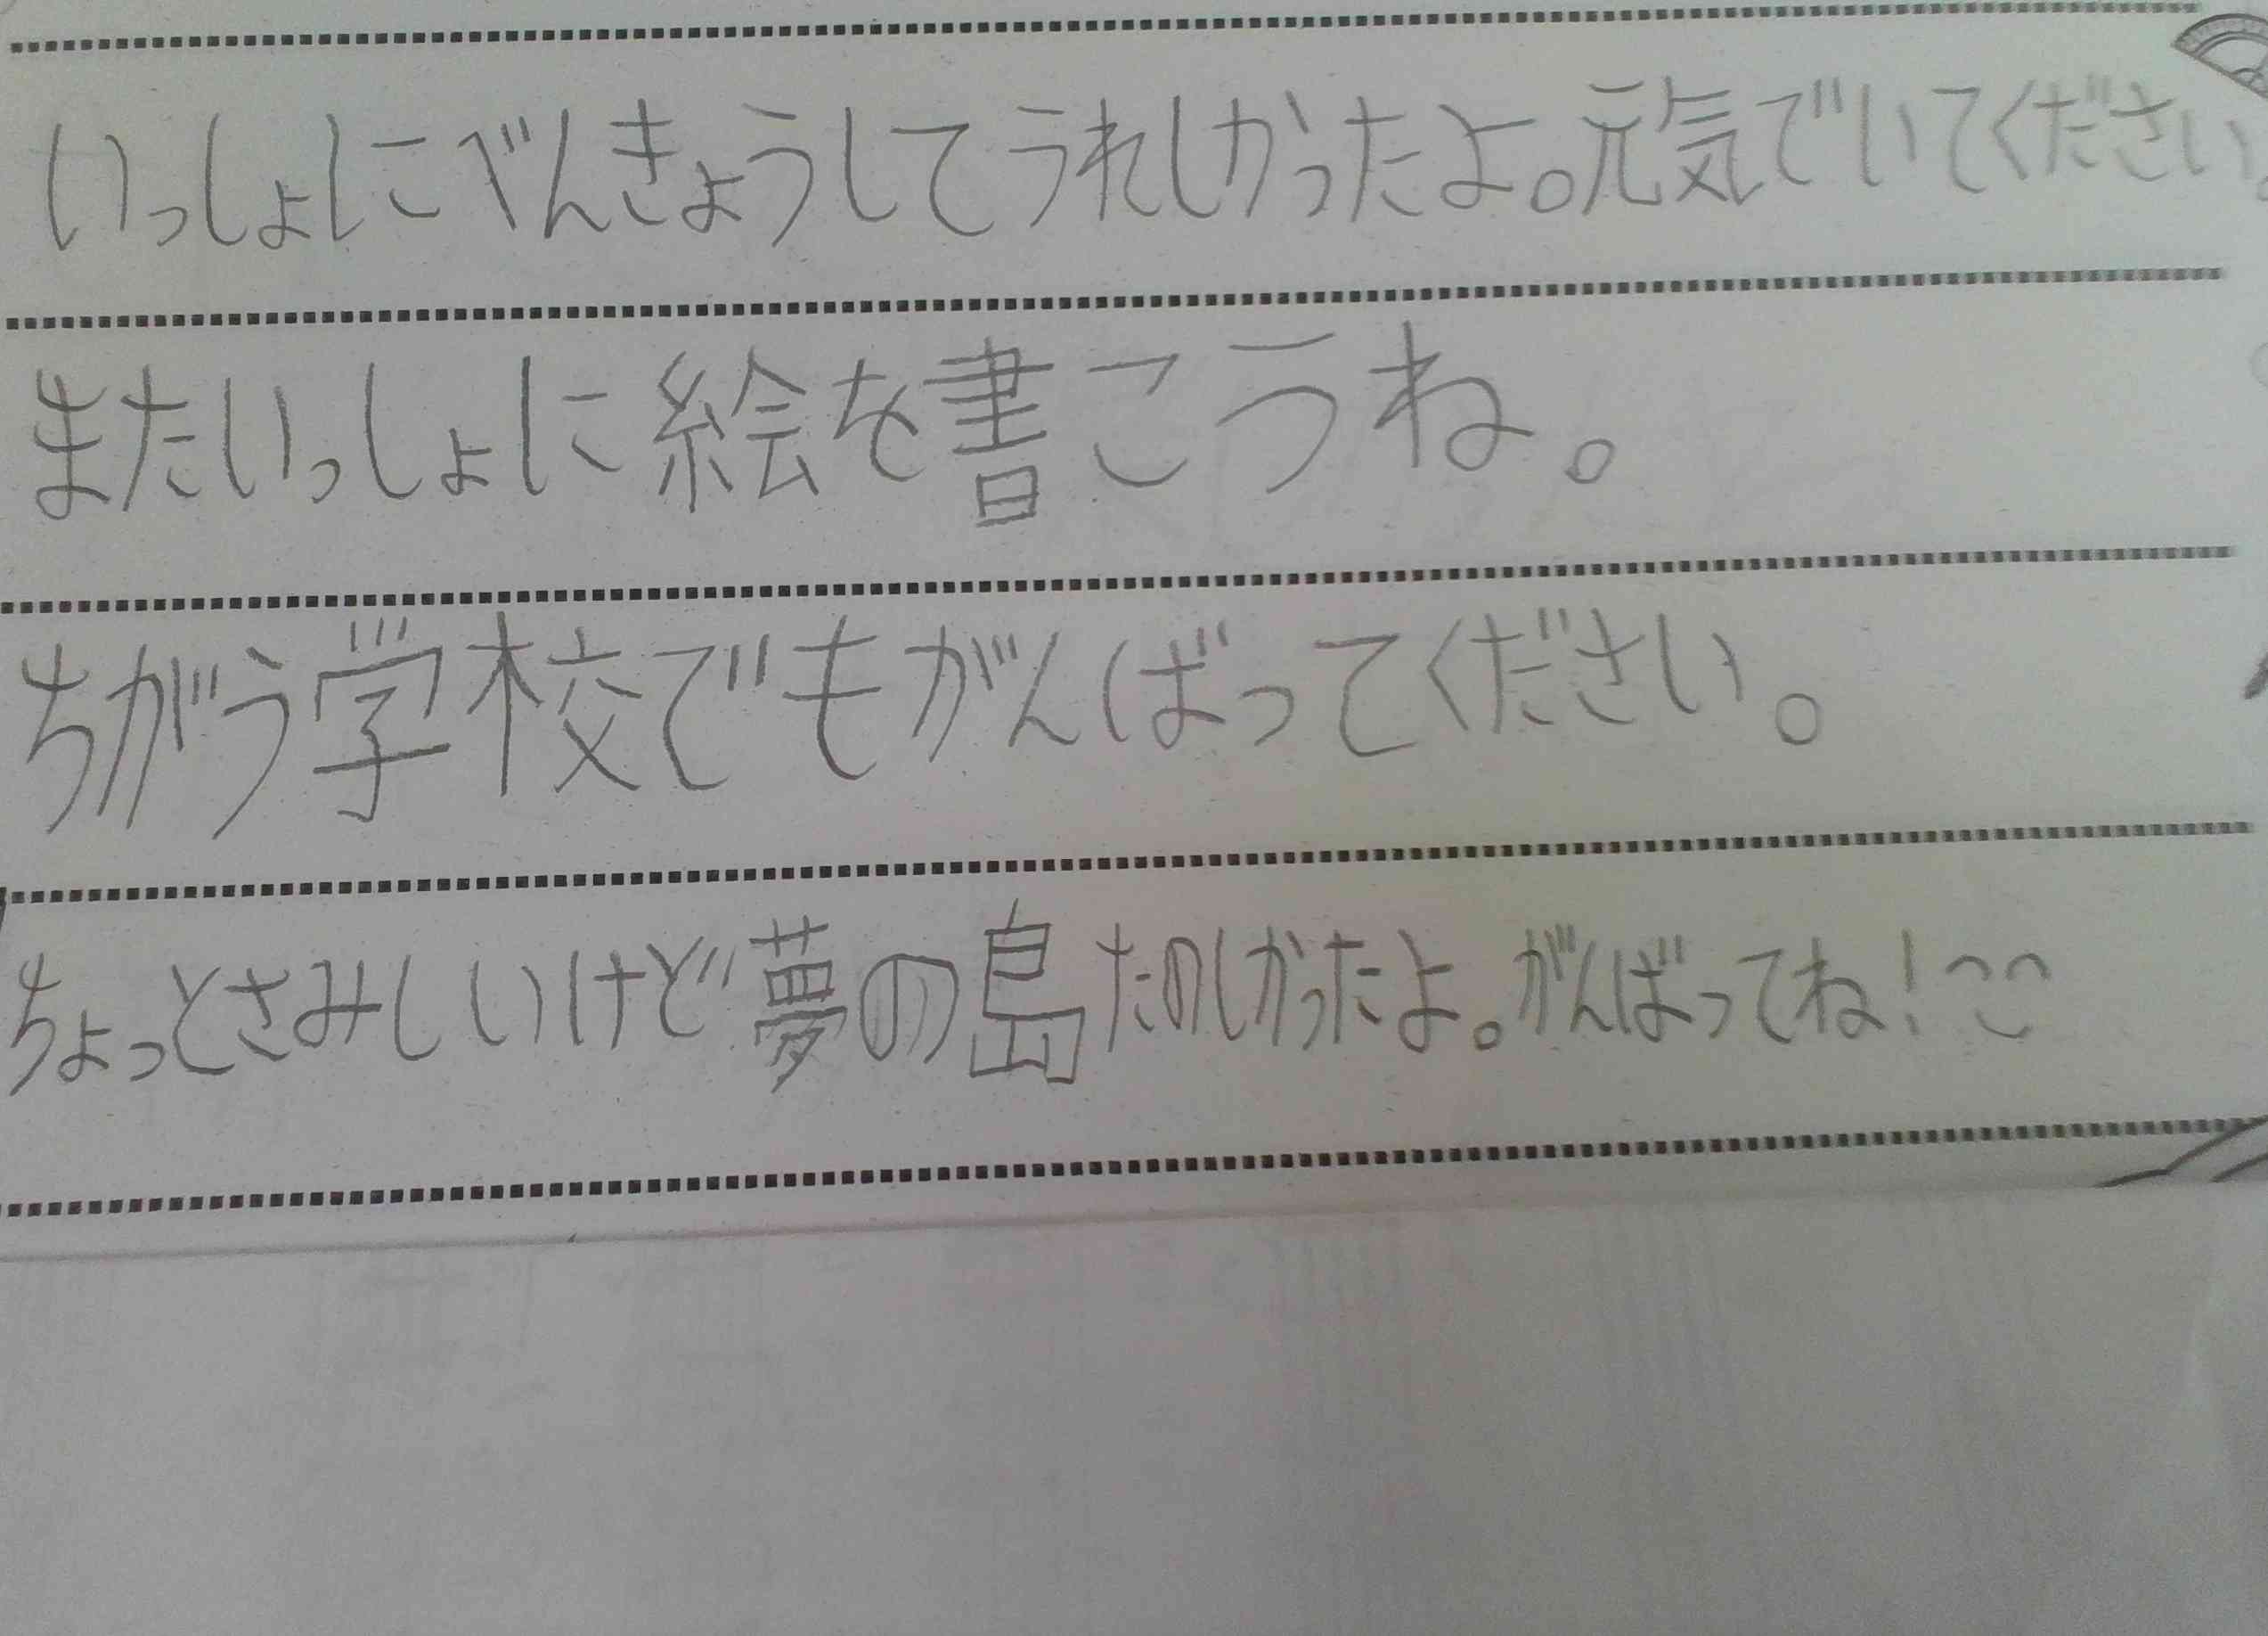 いっしょにべんきょうしてうれしかったよ。元気でいてください。
またいっしょに絵を書こうね。
ちがう学校でもがんばってください。
ちょっとさみしいけど夢の島たのしかったよ。がんばってね!